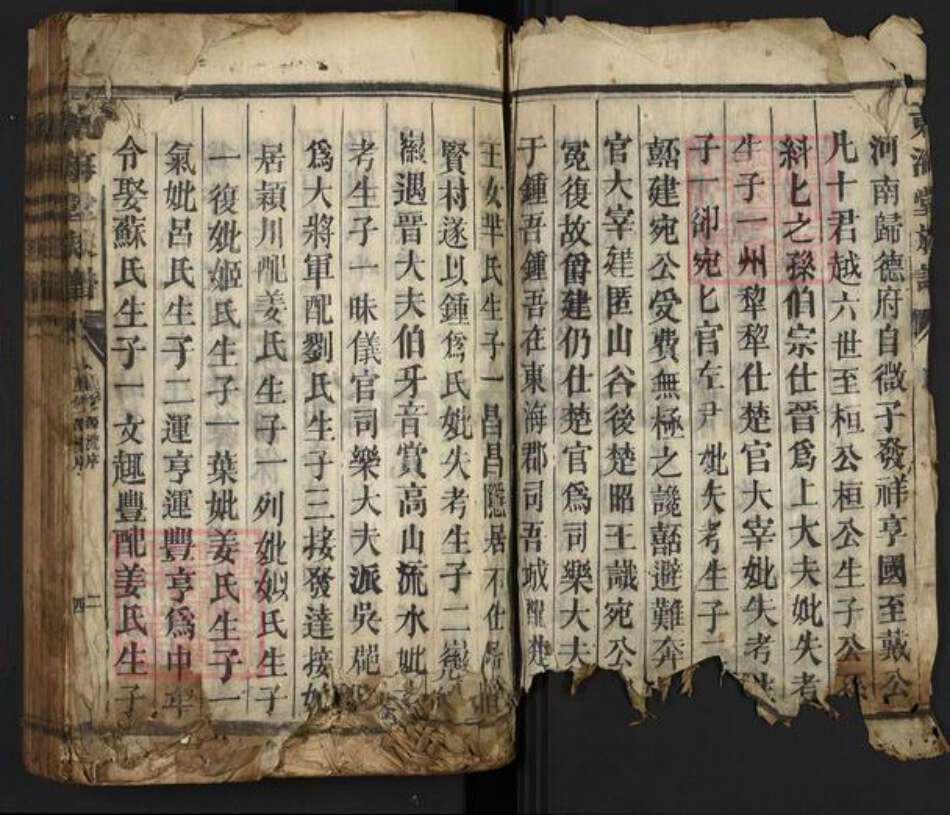 河南歸德府自微子發祥亨國至戴公
凡十君越六世至桓公桓公生子公孫
糾匕之孫伯宗仕晉爲上大夫妣失考
生子一州犂犂仕楚官大宰妣失考生
子一卻宛匕官左尹妣失考生子
嚭建宛公受費無極之讒嚭避難奔
官大宰建匿山谷後楚昭王識宛公
冤復故爵建仍仕楚官爲司樂大夫
于鍾吾鍾吾在東海郡司吾城配楚
王女芈氏生子一昌昌隱居不仕歸
賢村遂以鍾爲氏妣失考生子二
遇晉大夫伯牙音賞高山流水妣
考生子一昧儀官司樂大夫派吳
爲大將軍配劉氏生子三接發達接
居穎川配姜氏生子一列妣姒氏生子
一復妣姬氏生子一葉妣姜氏生子一
氣妣呂氏生子二運亨運豐亨爲中
令娶蘇氏生子一女趣豐配姜氏生子
東海堂族譜
海堂
二
四